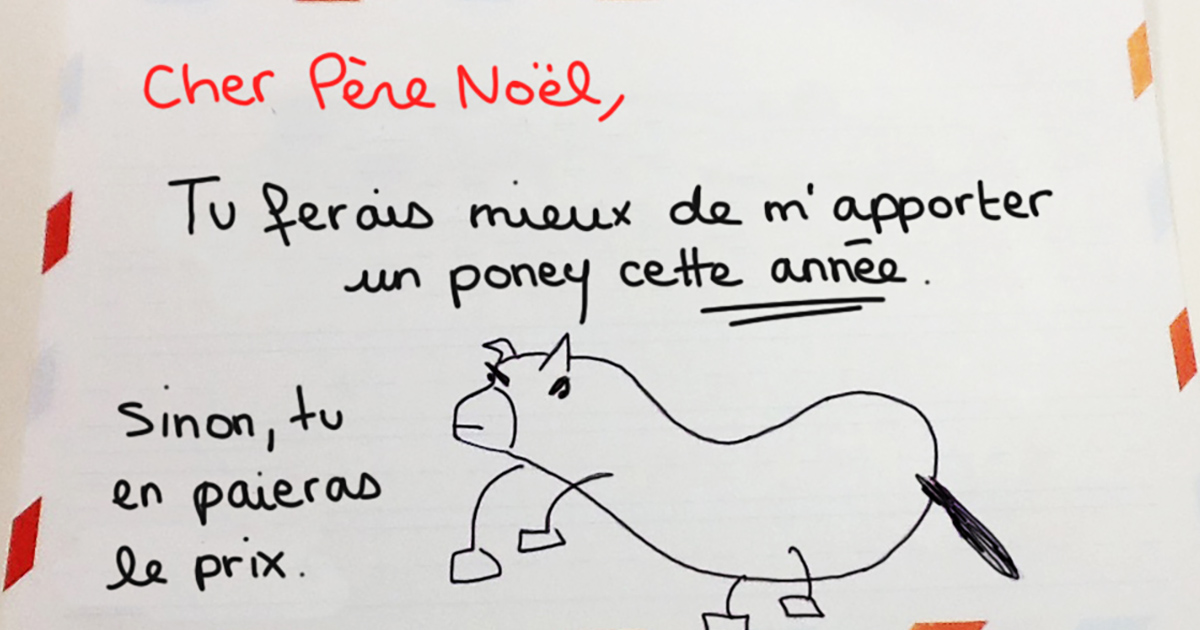 Cher Père Noël,
Tu ferais mieux de m'apporter
un poney cette année.
Sinon, tu
en paieras
le prix.